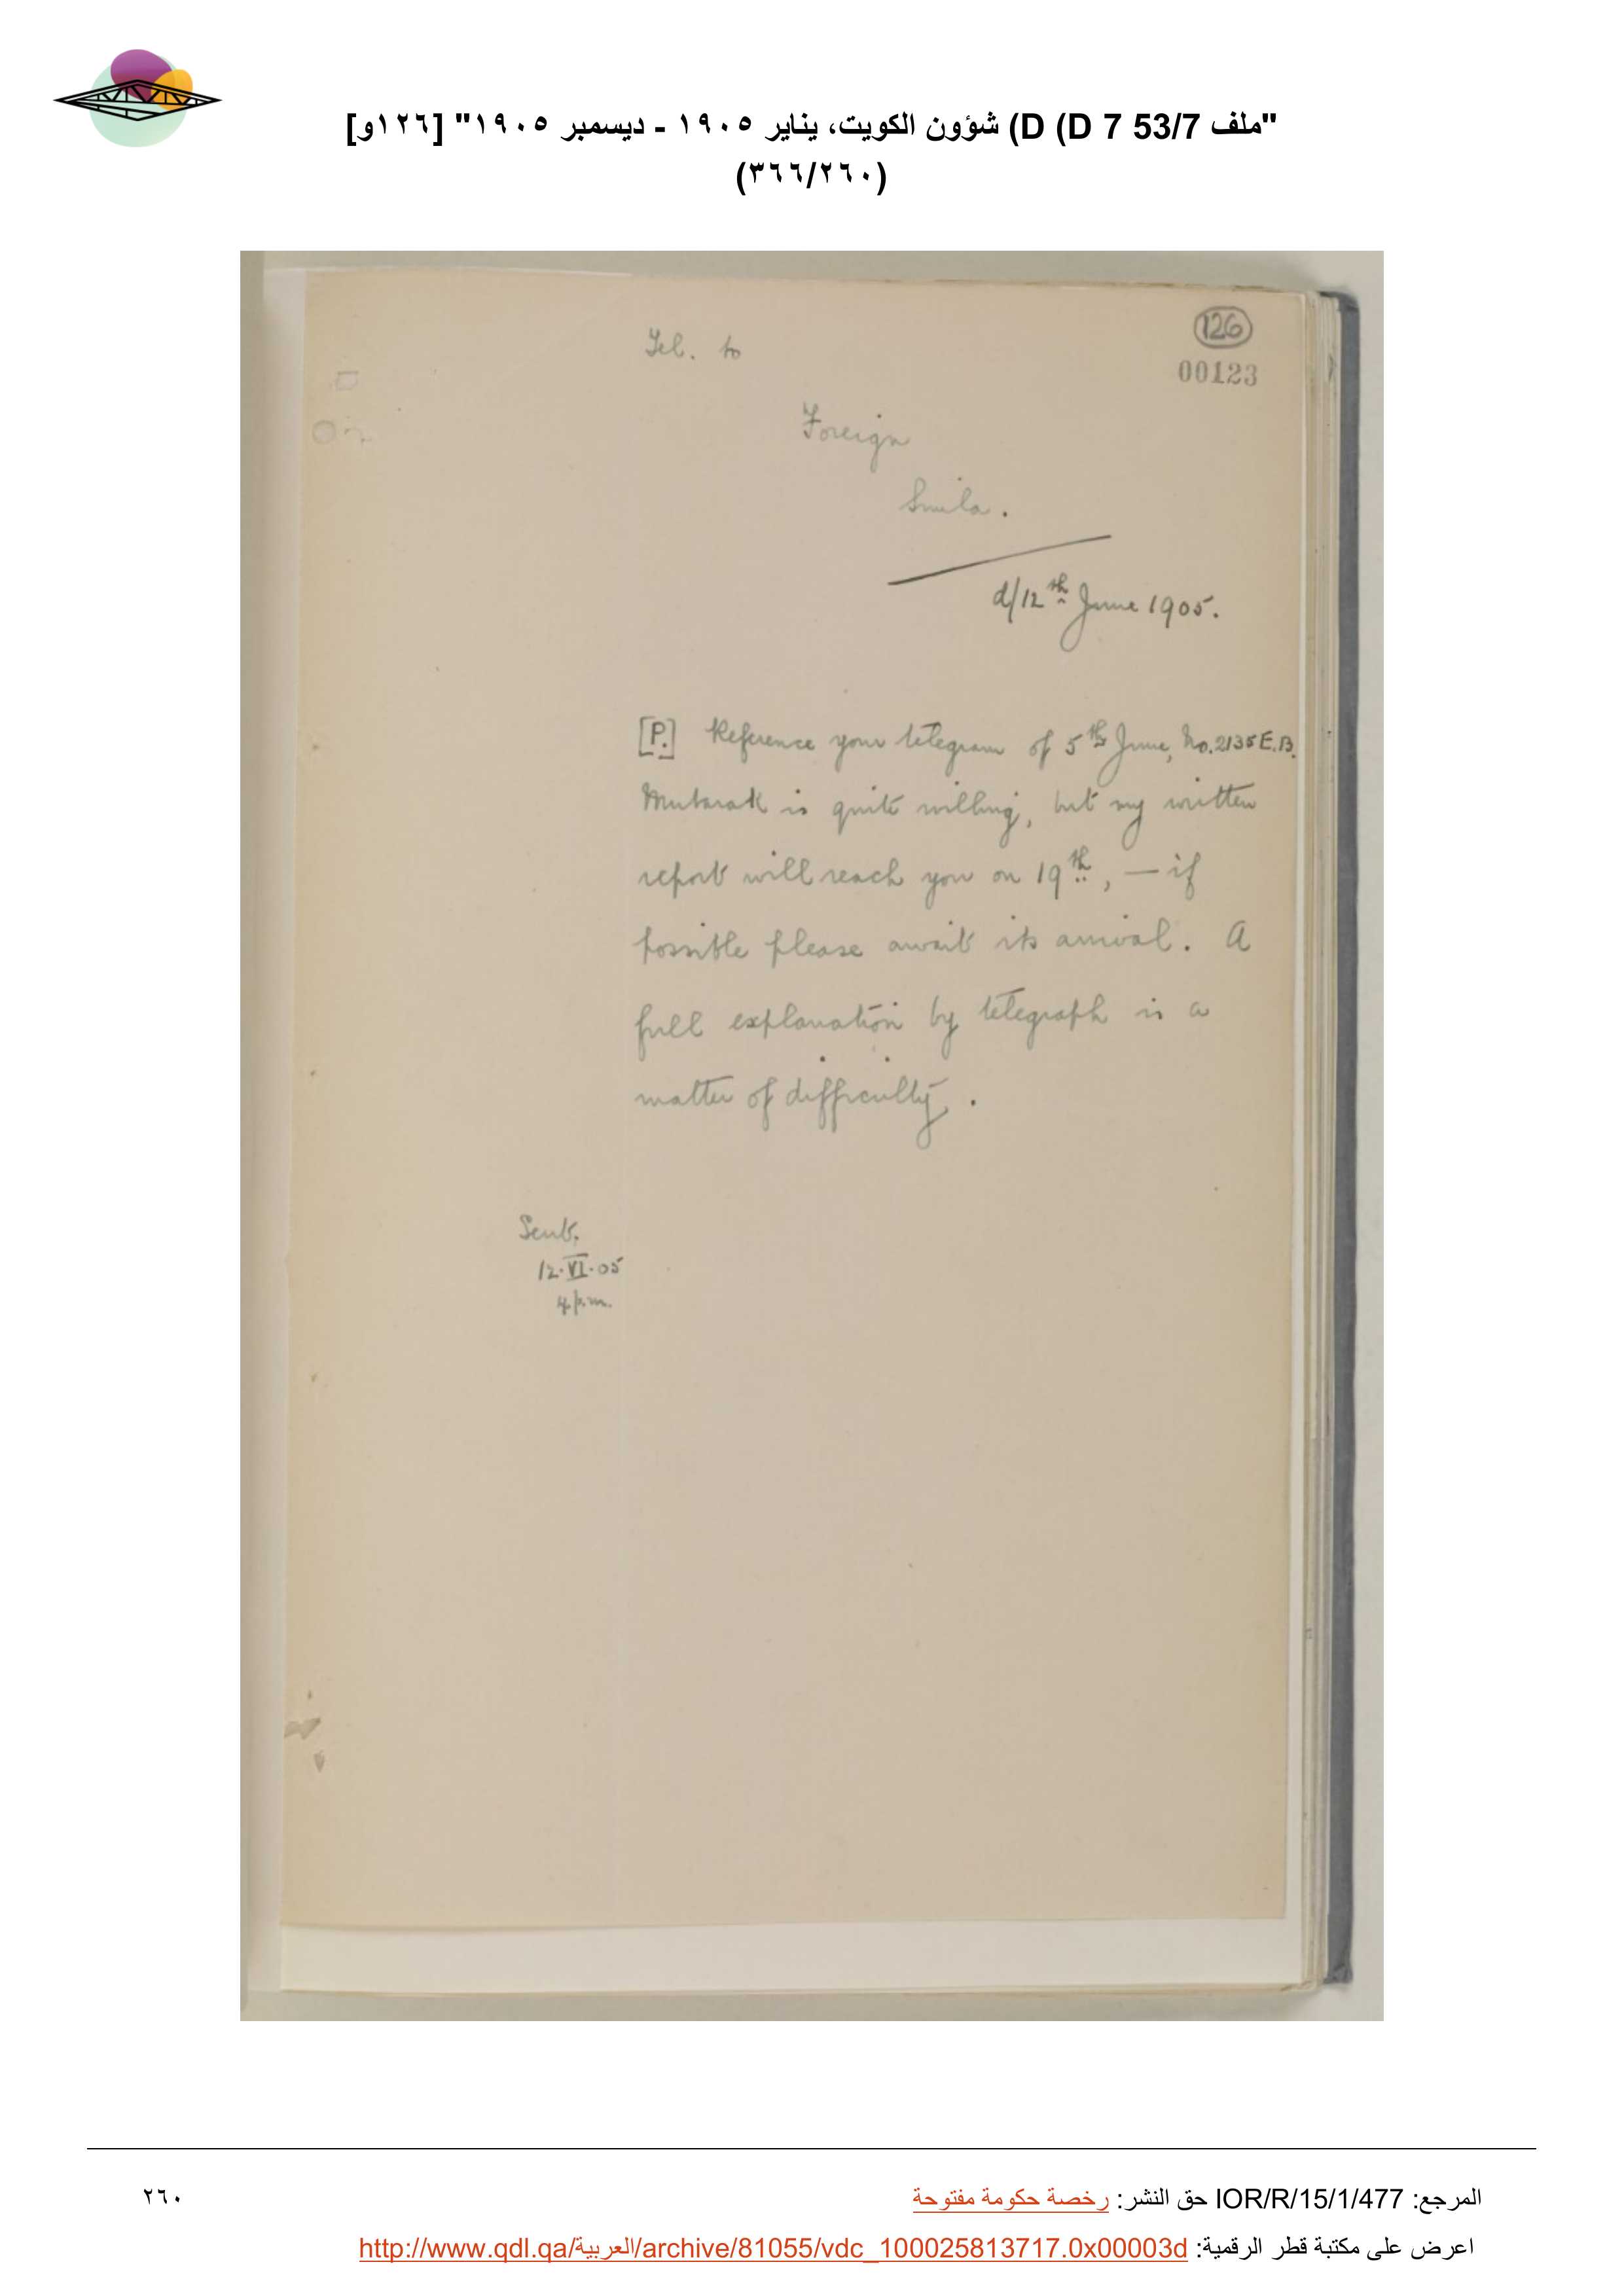 "ملف 53/7 D 7 D) (D) شؤون الكويت، يناير ١٩٠٥ - ديسمبر ١٩٠٥" [١٢٦و]
(٣٦٦/٢٦٠)
126
00123
Tel. to
Foreign
Simla.
d/12th June 1905.
[P.] Reference your telegram of 5th June, No. 2135 E.B.
Mubarak is quite willing, but my written
report will reach you on 19th, — if
possible please await its arrival. A
full explanation by telegraph is a
matter of difficulty.
Sent.
12.VI.05
4 p.m.
المرجع: IOR/R/15/1/477 حق النشر: رخصة حكومة مفتوحة
٢٦٠
اعرض على مكتبة قطر الرقمية: http://www.qdl.qa/العربية/archive/81055/vdc_100025813717.0x00003d